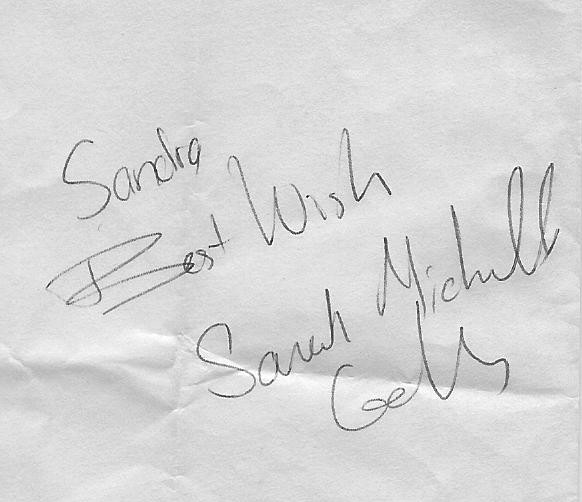 Sandra
Best Wish
Sarah Michell
Gell